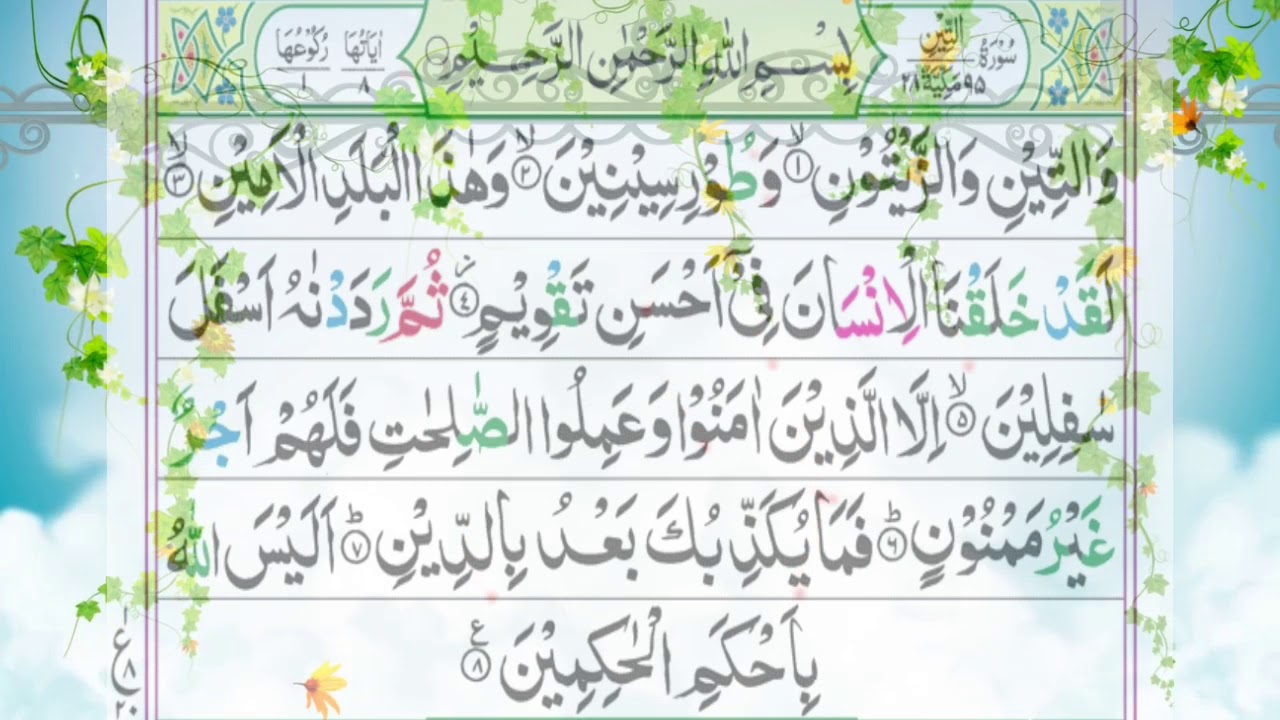 سُوْرَةُ التِّيْنِ
٩٥ مَكِّيَّةٌ ٢٨
بِسْمِ اللّٰهِ الرَّحْمٰنِ الرَّحِيْمِ
اٰيَاتُهَا ٨ رُكُوْعُهَا ١
وَالتِّيْنِ وَالزَّيْتُوْنِ ۙ﴿١﴾ وَطُوْرِ سِيْنِيْنَ ۙ﴿٢﴾ وَهٰذَا الْبَلَدِ الْاَمِيْنِ ۙ﴿٣﴾
لَقَدْ خَلَقْنَا الْاِنْسَانَ فِيْٓ اَحْسَنِ تَقْوِيْمٍ ؗ﴿٤﴾ ثُمَّ رَدَدْنٰهُ اَسْفَلَ
سٰفِلِيْنَ ۙ﴿٥﴾ اِلَّا الَّذِيْنَ اٰمَنُوْا وَعَمِلُوا الصّٰلِحٰتِ فَلَهُمْ اَجْرٌ
غَيْرُ مَمْنُوْنٍ ؕ﴿٦﴾ فَمَا يُكَذِّبُكَ بَعْدُ بِالدِّيْنِ ؕ﴿٧﴾ اَلَيْسَ اللّٰهُ
بِاَحْكَمِ الْحٰكِمِيْنَ ﴿٨﴾ ع
ع
٨
٢٠